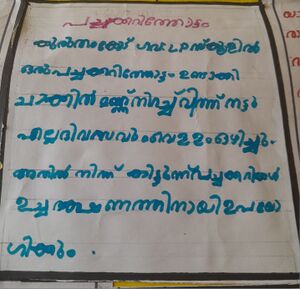 പച്ചക്കറിത്തോട്ടം
ഗവ: LP സ്കൂളിൽ
ഒരു പച്ചക്കറിത്തോട്ടം ഉണ്ടാക്കി
ചാക്കിൽ മണ്ണ് നിറച്ച് വിത്ത് നട്ടു
എല്ലാ ദിവസവും വെള്ളം ഒഴിച്ചു.
അതിൽ നിന്ന് കിട്ടുന്ന പച്ചക്കറികൾ
ഉച്ച ഭക്ഷണത്തിനായി ഉപയോ
ഗിക്കും.